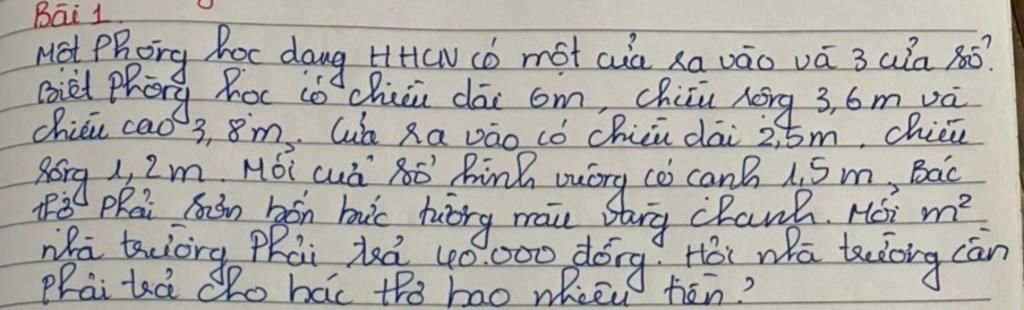 Bài 1
Một phòng học dạng HHCN có một cửa ra vào và 3 cửa sổ.
Biết phòng học có chiều dài 6m, chiều rộng 3,6m và
chiều cao 3,8m. Cửa ra vào có chiều dài 2,5m, chiều
rộng 1,2m. Mỗi cửa sổ hình vuông có cạnh 1,5m. Bác
thợ phải sơn bốn bức tường màu vàng chanh. Mỗi m²
nhà trường phải trả 40.000 đồng. Hỏi nhà trường cần
phải trả cho bác thợ bao nhiêu tiền?